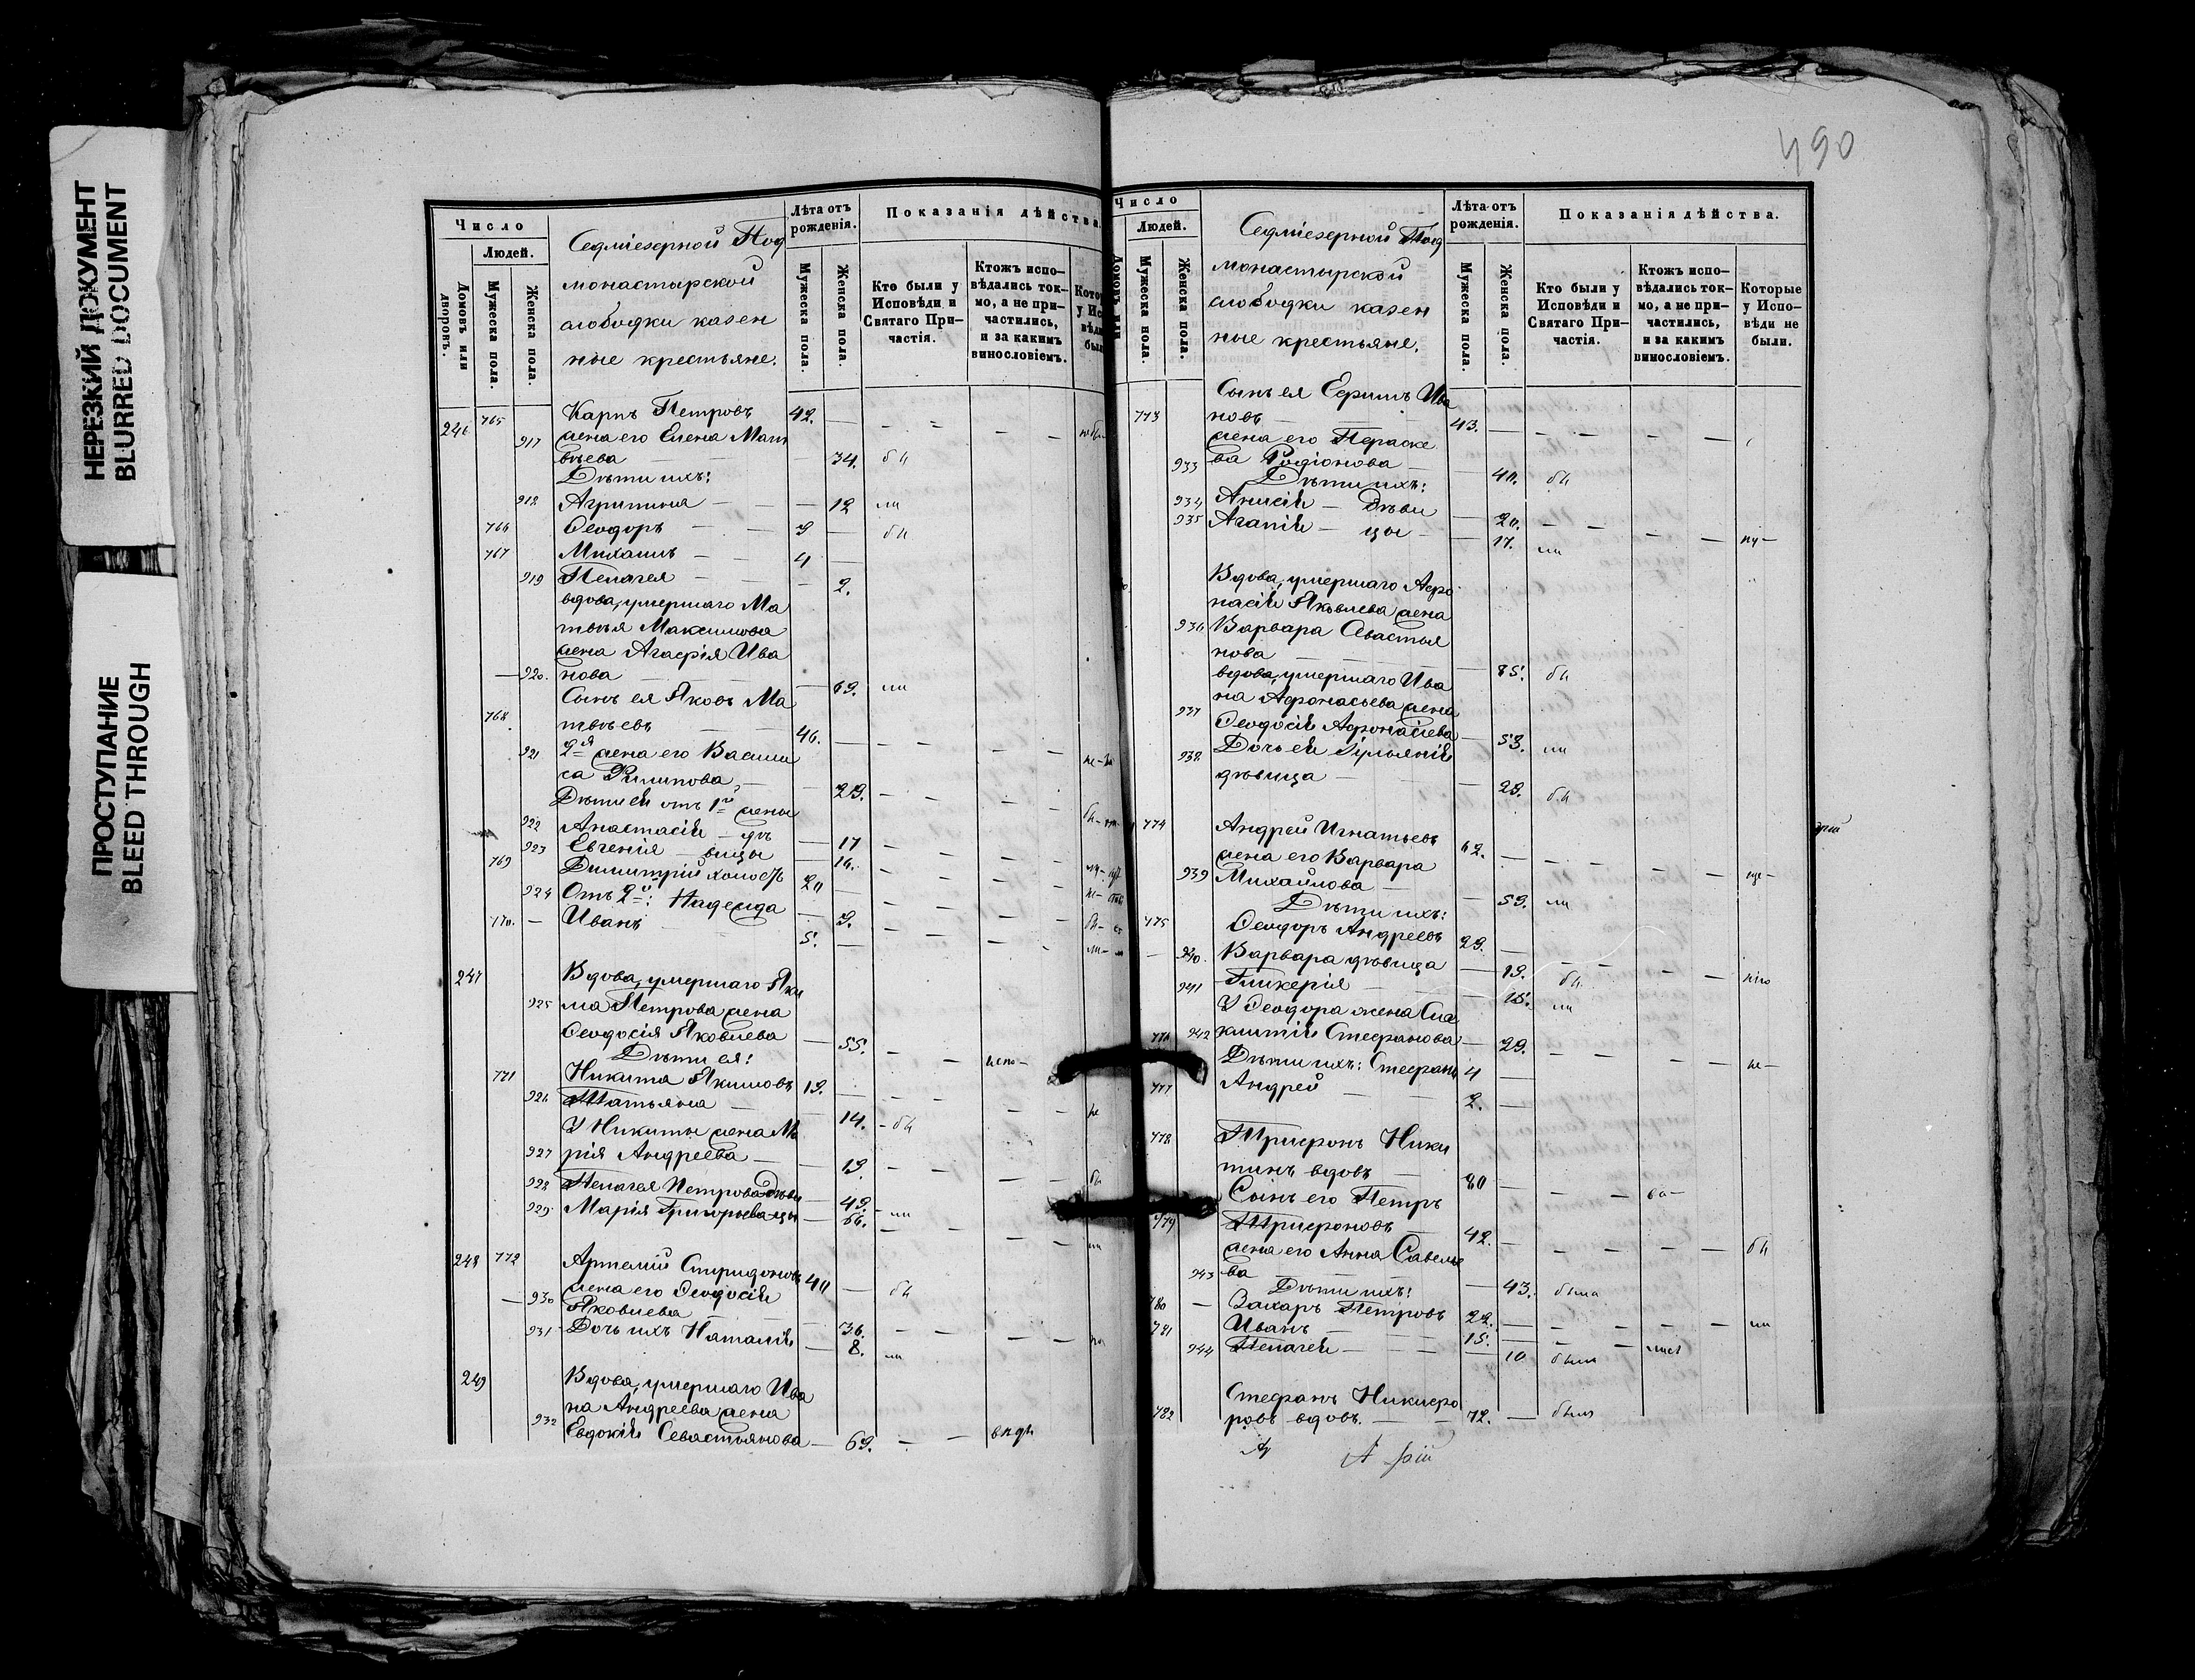 НЕРЕЗКИЙ ДОКУМЕНТ
BLURRED DOCUMENT
ПРОСТУПАНИЕ
BLEED THROUGH
490
Число
Людей.
Домовъ или дворовъ.
Мужеска пола.
Женска пола.
Седміезерной Под
монастырской
слободки казен
ные крестьяне.
Лѣта отъ рожденія.
Мужеска пола.
Женска пола.
Показанія дѣйства.
Кто были у Исповѣди и Святаго Причастія.
Ктожъ исповѣдались токмо, а не причастились, и за какимъ винословіемъ.
246 765 Карпъ Петровъ 42. —
917 жена его Елена Мат
вѣева — 34. бы
Дѣти ихъ:
918 Агрипина — 12 ли
766 Ѳеодоръ — 9 — бы
767 Михаилъ — 4 —
919 Пелагея — 2.
вдова, умершаго Ма
твѣя Максимова
жена Агафія Ива
920. нова — 69. ли
Сынъ ея Яковъ Ма
768 твѣевъ 46. —
921 2я жена его Васили
са Филипова — 29.
Дѣти ей отъ 1й жены
922 Анастасія — дѣ — 17
923 Евгенія — вицы — 16.
769 Димитрій холостъ 20 —
924 Отъ 2й: Надежда — 9.
770. — Иванъ 5. —
247 Вдова, умершаго Яки
925 ма Петрова жена
Ѳеодосія Яковлева — 55. — испо—
Дѣти ея:
771 Никита Якимовъ 19. —
926 Татьяна — 14. — бы
У Никиты жена Ма
927 рія Андреева — 19.
928 Пелагея Петрова дѣви — 49. — ли
929. Марія Григорьева цы — 66.
248 772 Артемій Спиридоновъ 40 — бы
930 жена его Ѳеодосія
Яковлева — 36.
931 Дочь ихъ Наталія — 8. ли
249 Вдова, умершаго Ива
на Андреева жена
932 Евдокія Севастьянова — 69. —
Число
Людей.
Мужеска пола.
Женска пола.
Седміезерной Под
монастырской
слободки казен
ные крестьяне.
Лѣта отъ рожденія.
Мужеска пола.
Женска пола.
Показанія дѣйства.
Кто были у Исповѣди и Святаго Причастія.
Ктожъ исповѣдались токмо, а не причастились, и за какимъ винословіемъ.
Которые у Исповѣди не были.
Сынъ ея Ефимъ Ива
773 новъ 43. —
жена его Параске
933 ва Родіонова — 40. бы
Дѣти ихъ:
934 Анисія — Дѣви — 20.
935 Агапія — цы — 17. ли
Вдова, умершаго Афо
насія Яковлева жена
936 Варвара Савастья
нова — 85. бы
вдова, умершаго Ива
на Афонасьева жена
937 Ѳеодосія Афонасіева — 53. ли
938 Дочь ей Іульянія
дѣвица — 29. бы
774 Андрей Игнатьевъ 62. —
жена его Варвара
939 Михайлова — 59. ли
Дѣти ихъ:
775 Ѳеодоръ Андреевъ 29. —
940. Варвара дѣвица — 19. бы
941 Гликерія — 15. ли
У Ѳеодора жена Сик
776 942 клитія Стефанова — 29. не—
Дѣти ихъ: Стефанъ 4 —
777 Андрей 2. —
778 Трифонъ Ники
тинъ вдовъ 80 —
Сынъ его Петръ
779 Трифоновъ 42. — бы
жена его Анна Савелье
943 ва — 43. была
Дѣти ихъ:
780 — Захаръ Петровъ 22. — ли
781 Иванъ 15. —
944 Пелагея — 10 была
Стефанъ Никифо
782 ровъ вдовъ. — 72. — былъ